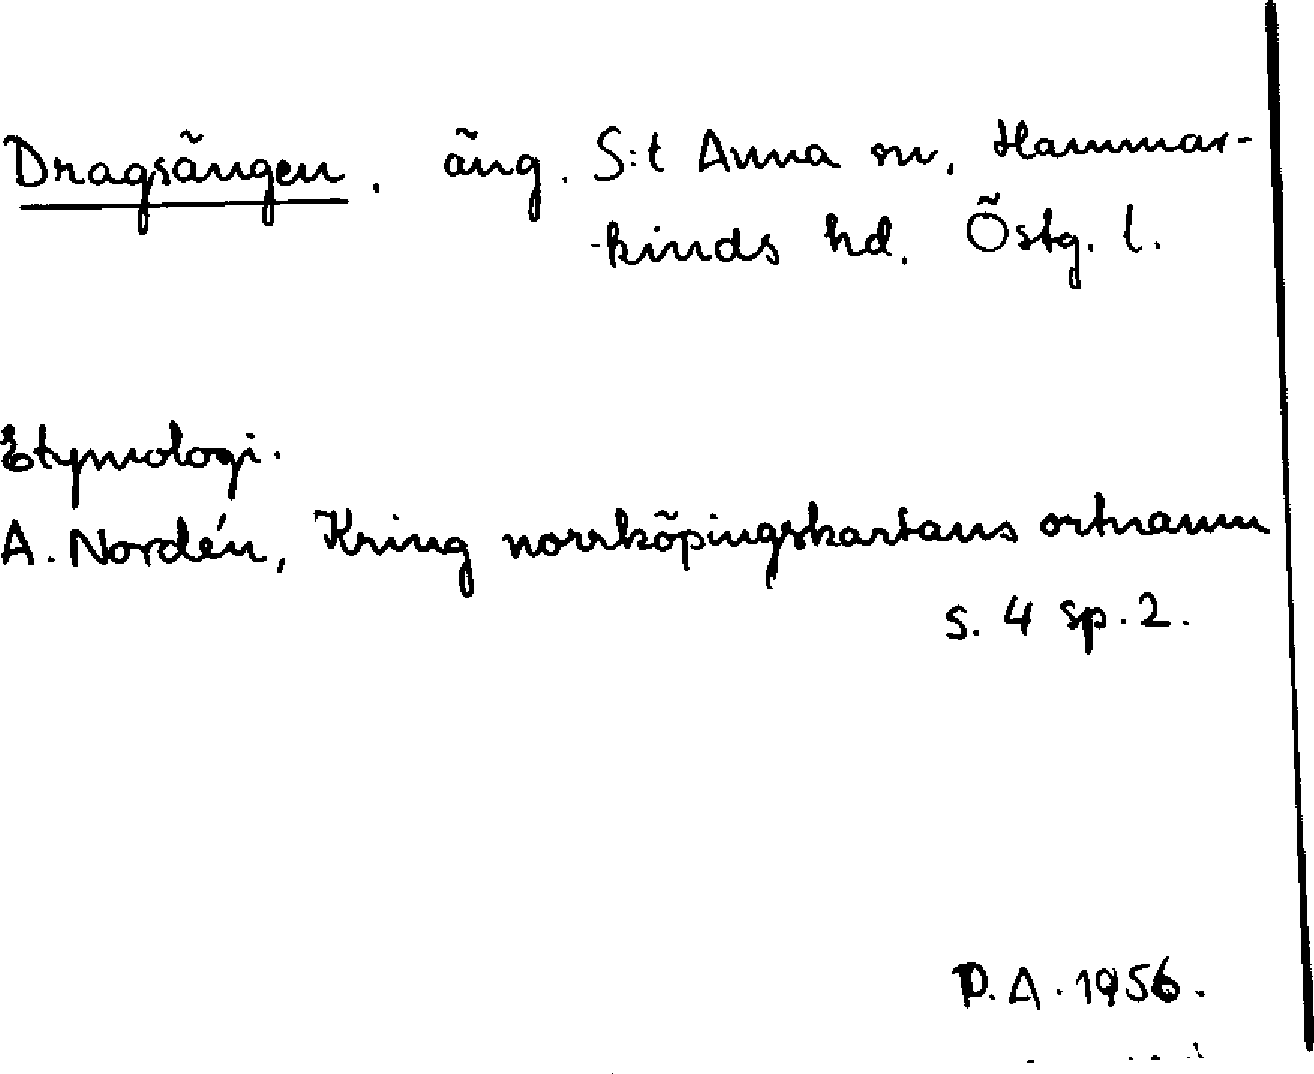 Dragsängen. äng. S:t Anna sn, Hammar-
kinds hd. Östg. l.
Etymologi.
A. Nordén, Kring norrköpingskartans ortnamn
s. 4 sp. 2.
D. A. 1956.